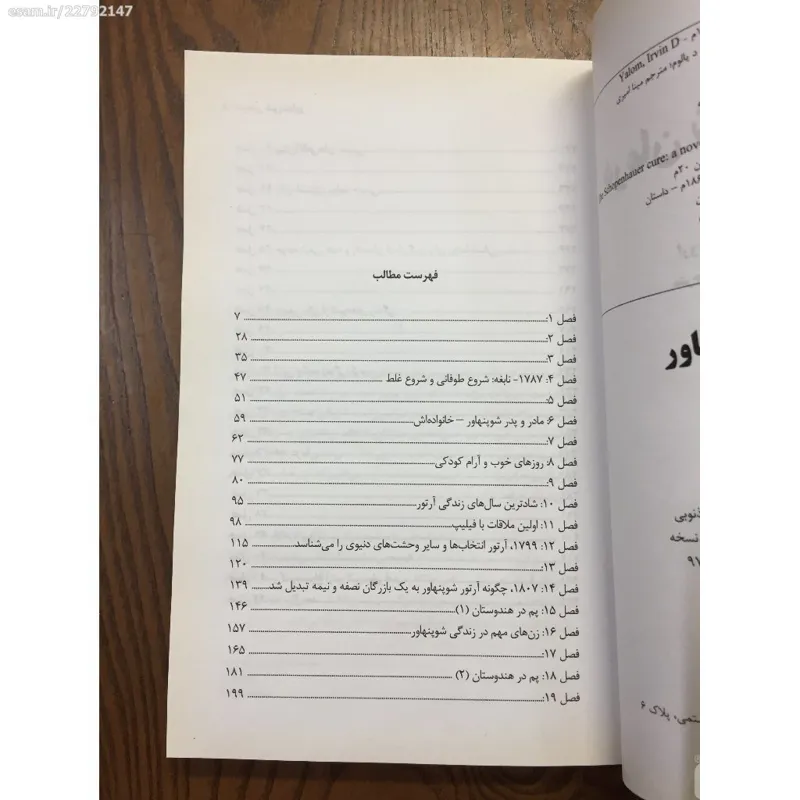 esam.ir/22792147
فهرست مطالب
فصل ۱: ۷
فصل ۲: ۲۸
فصل ۳: ۳۵
فصل ۴: ۱۷۸۷- نابغه: شروع طوفانی و شروع غلط ۴۷
فصل ۵: ۵۱
فصل ۶: مادر و پدر شوپنهاور – خانواده‌اش ۵۹
فصل ۷: ۶۲
فصل ۸: روزهای خوب و آرام کودکی ۷۷
فصل ۹: ۸۰
فصل ۱۰: شادترین سال‌های زندگی آرتور ۹۵
فصل ۱۱: اولین ملاقات با فیلیپ ۹۸
فصل ۱۲: ۱۷۹۹، آرتور انتخاب‌ها و سایر وحشت‌های دنیوی را می‌شناسد ۱۱۵
فصل ۱۳: ۱۲۰
فصل ۱۴: ۱۸۰۷، چگونه آرتور شوپنهاور به یک بازرگان نصفه و نیمه تبدیل شد ۱۳۹
فصل ۱۵: پم در هندوستان (۱) ۱۴۶
فصل ۱۶: زن‌های مهم در زندگی شوپنهاور ۱۵۷
فصل ۱۷: ۱۶۵
فصل ۱۸: پم در هندوستان (۲) ۱۸۱
فصل ۱۹: ۱۹۹
Yalom, Irvin D – م
د یالوم؛ مترجم مینا امیری
Schopenhauer cure: a nove
۲۰م
م – داستان
اور
نسخه
پلاک ۶